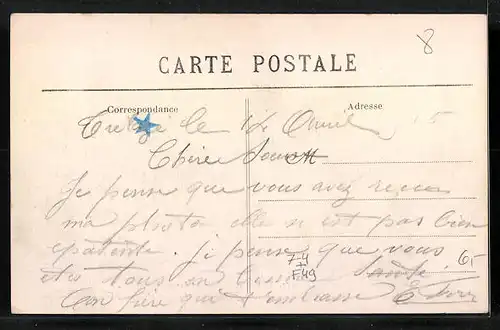 8
CARTE POSTALE
Correspondance
Adresse
le 14 Avril 15
Chère Soeur
Je pense que vous avez reçu
ma photo elle n est pas bien
épatante. je pense que vous
êtes tous en bonne Santé.
Ton frère qui t'embrasse